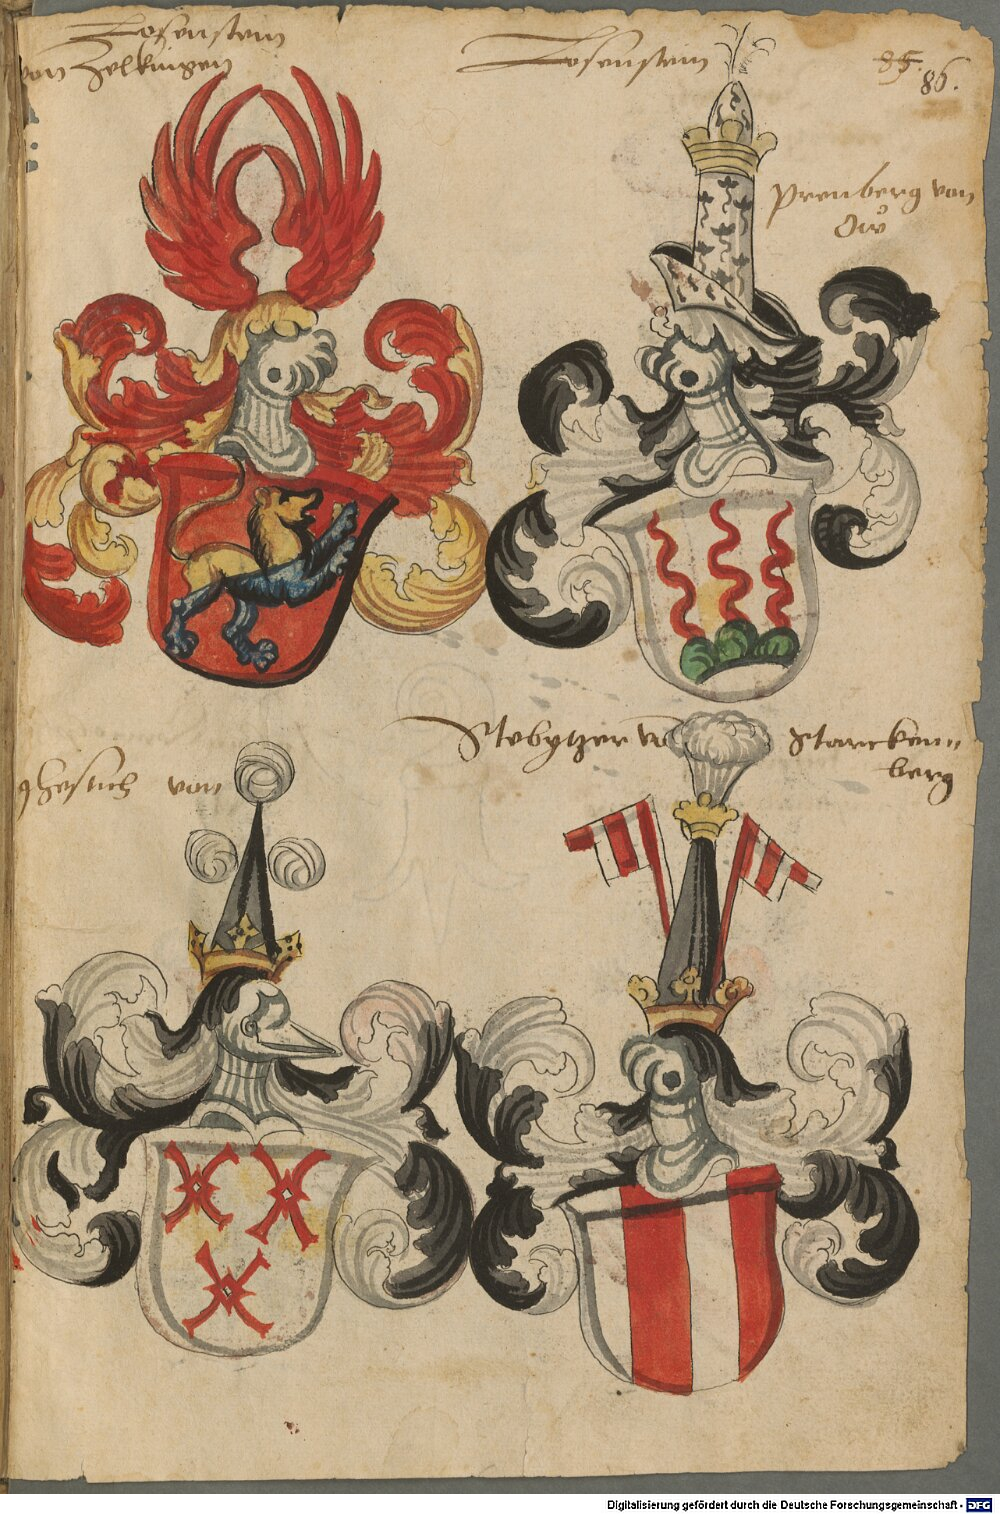 Losenstein
von Zelkingen
Losenstein
85.
86.
Prenberg von
von
Starcken=
berg
Digitalisierung gefördert durch die Deutsche Forschungsgemeinschaft -
DFG